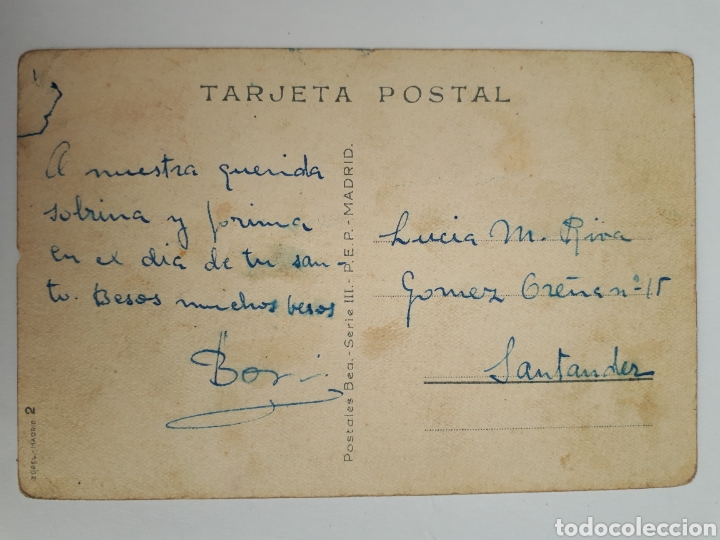 TARJETA POSTAL
A nuestra querida
sobrina y prima
en el dia de tu san-
to. Besos muchos besos
Postales Bea.-Serie III.-P.E.P.-MADRID.
Lucia M. Riva
Gomez Oreña nº 15
Santander
MADRID 2
todocoleccion